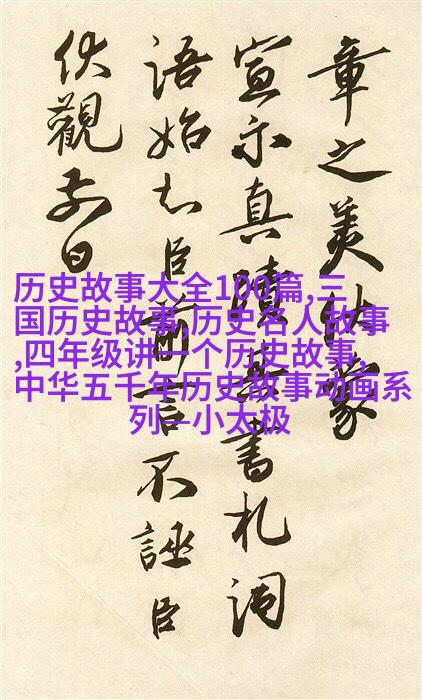 章之美伏蒙
宣示真蹟書札词
語始知臣前言不誣臣
伏觀日
历史故事大全100篇,三
国历史故事,历史名人故事
,四年级讲一个历史故事,
中华五千年历史故事动画系
列—小太极